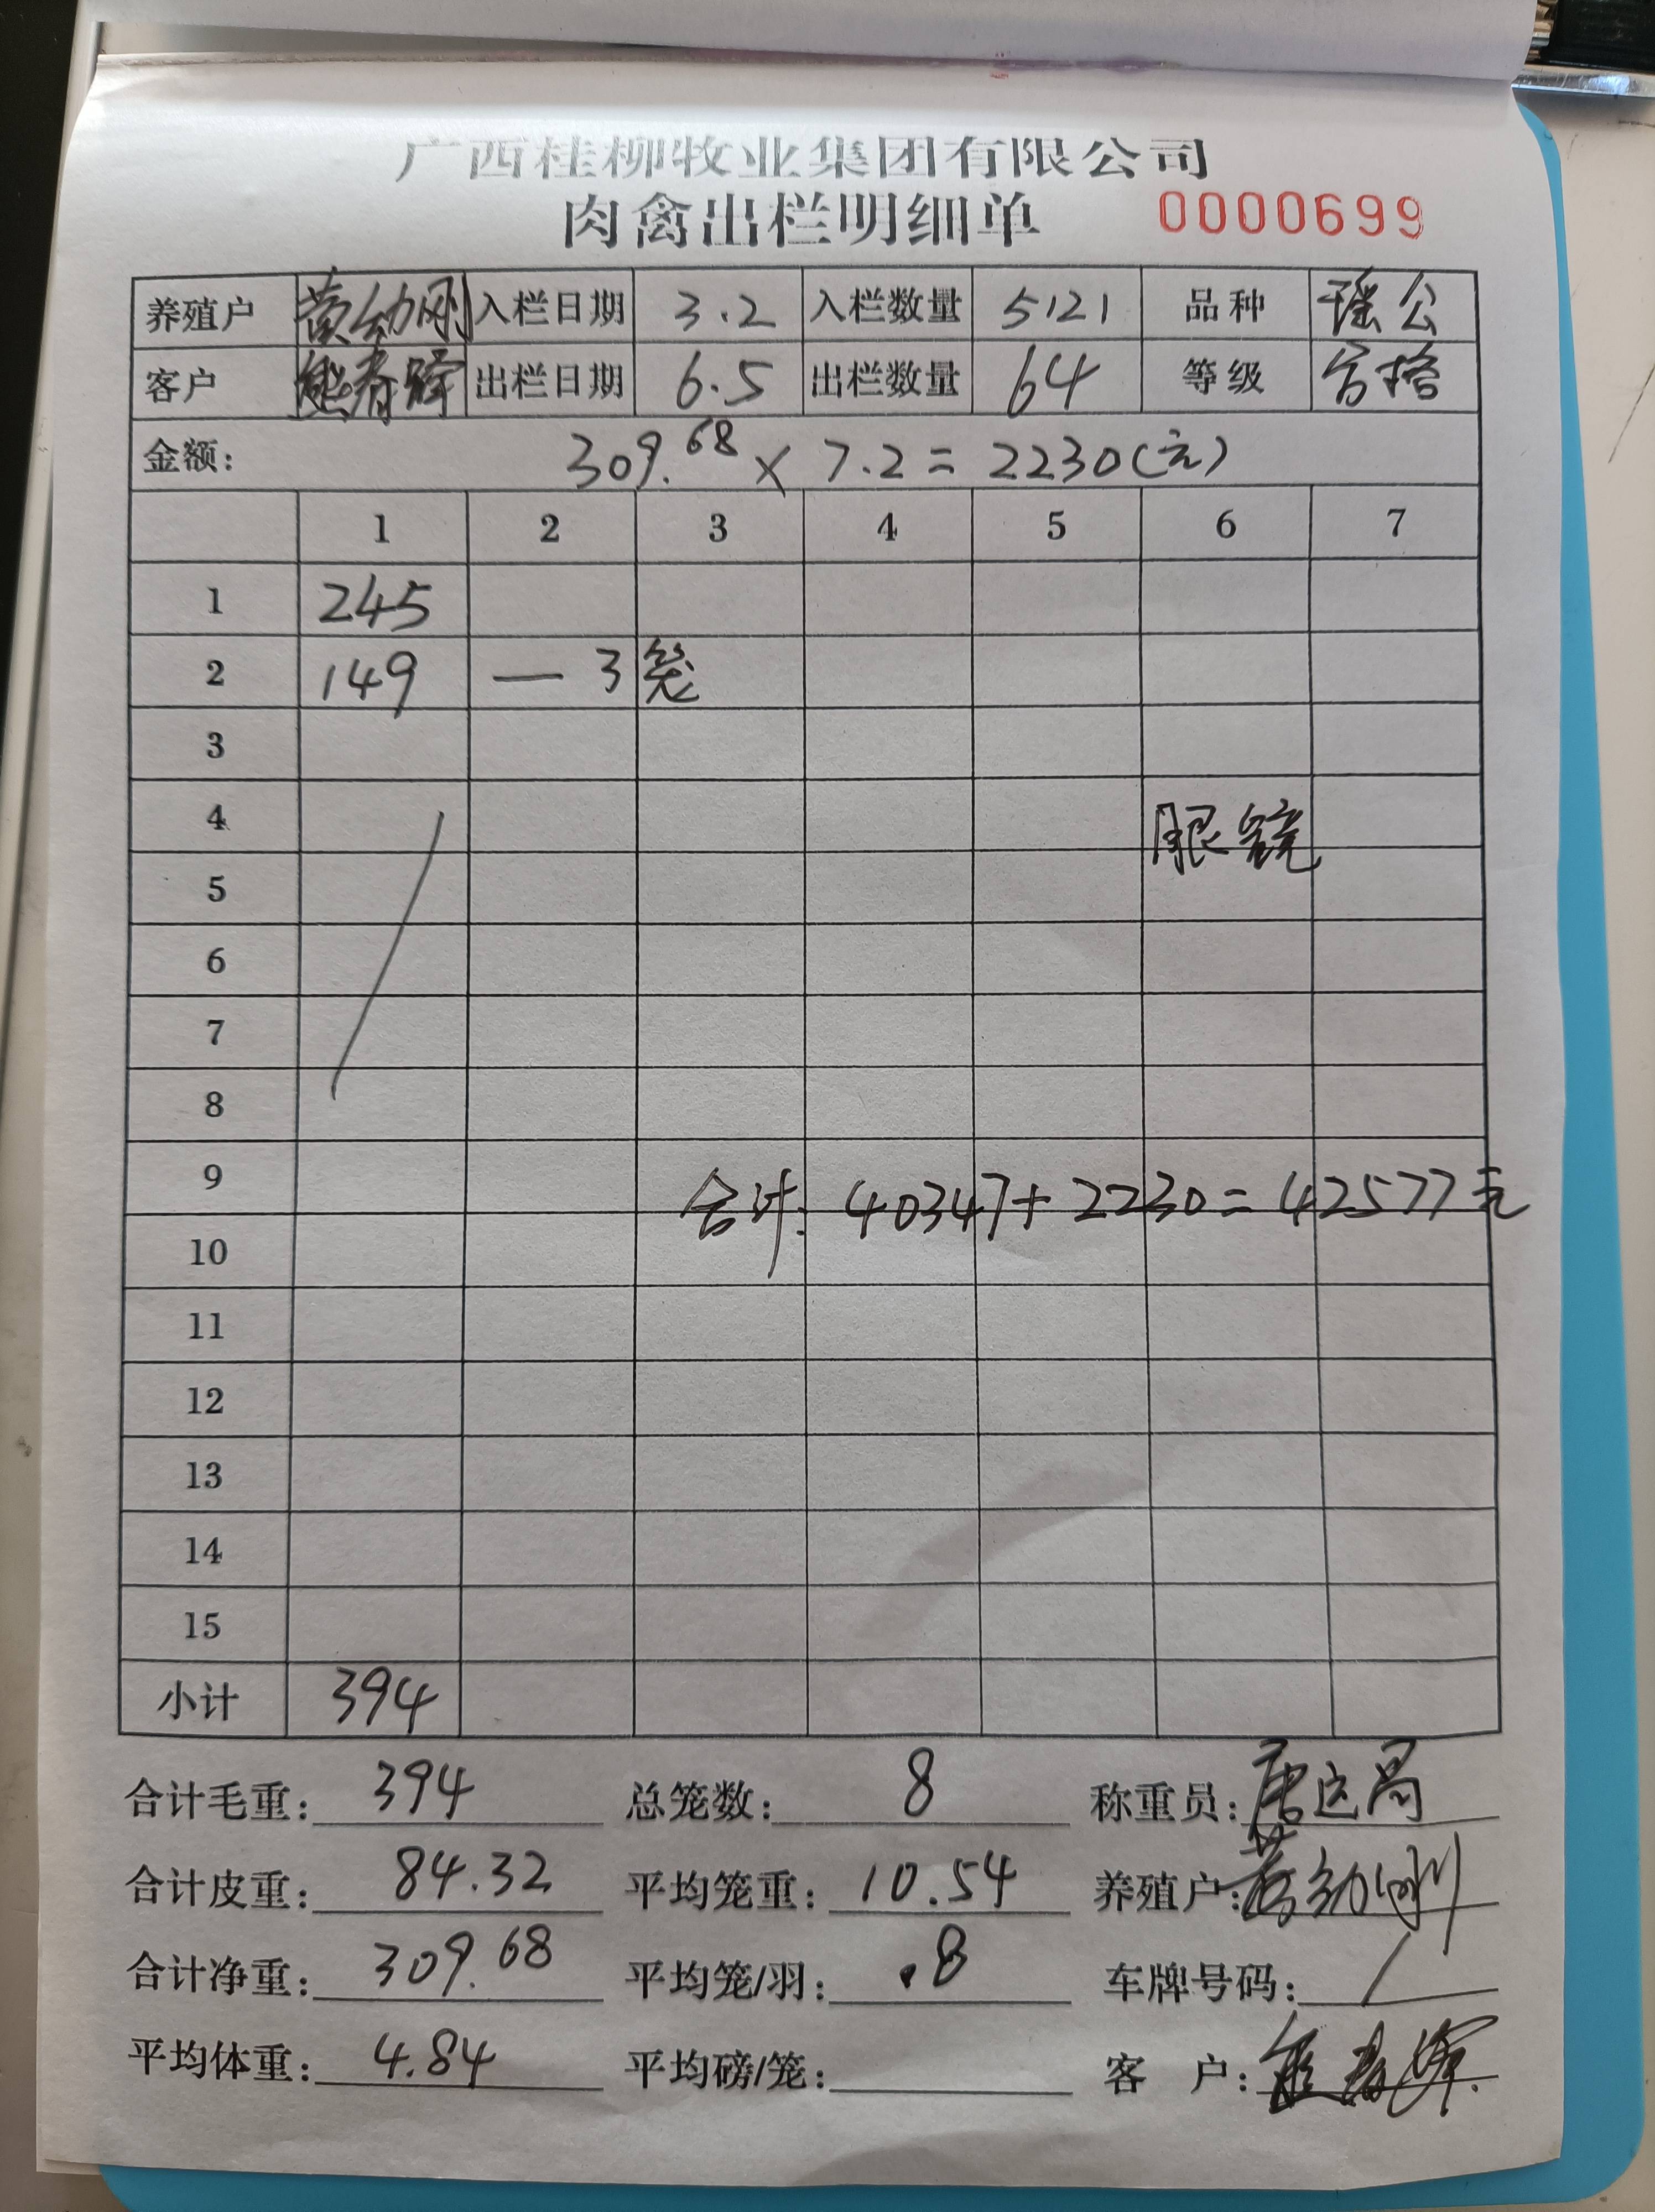 广西桂柳牧业集团有限公司
肉禽出栏明细单 0000699
养殖户 黄幼刚 入栏日期 3.2 入栏数量 5121 品种 瑶公
客户 出栏日期 6.5 出栏数量 64 等级 合格
金额: 309.68 × 7.2 = 2230(元)
1 2 3 4 5 6 7
1 245
2 149 — 3笼
3
4 眼镜
5
6
7
8
9 合计: 40347 + 2230 = 42577元
10
11
12
13
14
15
小计 394
合计毛重: 394 总笼数: 8 称重员:
合计皮重: 84.32 平均笼重: 10.54 养殖户: 黄幼刚
合计净重: 309.68 平均笼/羽: .8 车牌号码: /
平均体重: 4.84 平均磅/笼: 客 户: